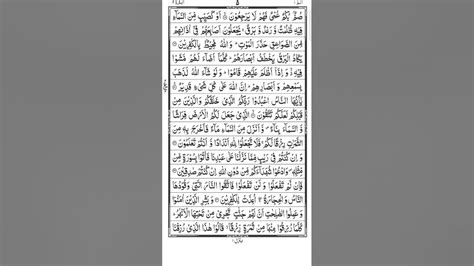 صُمٌّۢ بُكْمٌ عُمْيٌ فَهُمْ لَا يَرْجِعُوْنَ ۙ اَوْ كَصَيِّبٍ مِّنَ السَّمَآءِ
فِيْهِ ظُلُمٰتٌ وَّرَعْدٌ وَّبَرْقٌ ۚ يَجْعَلُوْنَ اَصَابِعَهُمْ فِيْٓ اٰذَانِهِمْ
مِّنَ الصَّوَاعِقِ حَذَرَ الْمَوْتِ ؕ وَاللّٰهُ مُحِيْطٌۢ بِالْكٰفِرِيْنَ
يَكَادُ الْبَرْقُ يَخْطَفُ اَبْصَارَهُمْ ؕ كُلَّمَآ اَضَآءَ لَهُمْ مَّشَوْا
فِيْهِ ۙ وَاِذَآ اَظْلَمَ عَلَيْهِمْ قَامُوْا ؕ وَلَوْ شَآءَ اللّٰهُ لَذَهَبَ
بِسَمْعِهِمْ وَاَبْصَارِهِمْ ؕ اِنَّ اللّٰهَ عَلٰى كُلِّ شَيْءٍ قَدِيْرٌ
يٰٓاَيُّهَا النَّاسُ اعْبُدُوْا رَبَّكُمُ الَّذِيْ خَلَقَكُمْ وَالَّذِيْنَ مِنْ
قَبْلِكُمْ لَعَلَّكُمْ تَتَّقُوْنَ ۙ الَّذِيْ جَعَلَ لَكُمُ الْاَرْضَ فِرَاشًا
وَّالسَّمَآءَ بِنَآءً ۪ وَّاَنْزَلَ مِنَ السَّمَآءِ مَآءً فَاَخْرَجَ بِهٖ مِنَ
الثَّمَرٰتِ رِزْقًا لَّكُمْ ۚ فَلَا تَجْعَلُوْا لِلّٰهِ اَنْدَادًا وَّاَنْتُمْ تَعْلَمُوْنَ
وَاِنْ كُنْتُمْ فِيْ رَيْبٍ مِّمَّا نَزَّلْنَا عَلٰى عَبْدِنَا فَاْتُوْا بِسُوْرَةٍ مِّنْ
مِّثْلِهٖ ۪ وَادْعُوْا شُهَدَآءَكُمْ مِّنْ دُوْنِ اللّٰهِ اِنْ كُنْتُمْ صٰدِقِيْنَ
فَاِنْ لَّمْ تَفْعَلُوْا وَلَنْ تَفْعَلُوْا فَاتَّقُوا النَّارَ الَّتِيْ وَقُوْدُهَا
النَّاسُ وَالْحِجَارَةُ ۖ اُعِدَّتْ لِلْكٰفِرِيْنَ وَبَشِّرِ الَّذِيْنَ اٰمَنُوْا
وَعَمِلُوا الصّٰلِحٰتِ اَنَّ لَهُمْ جَنّٰتٍ تَجْرِيْ مِنْ تَحْتِهَا الْاَنْهٰرُ ؕ
كُلَّمَا رُزِقُوْا مِنْهَا مِنْ ثَمَرَةٍ رِّزْقًا ۙ قَالُوْا هٰذَا الَّذِيْ رُزِقْنَا